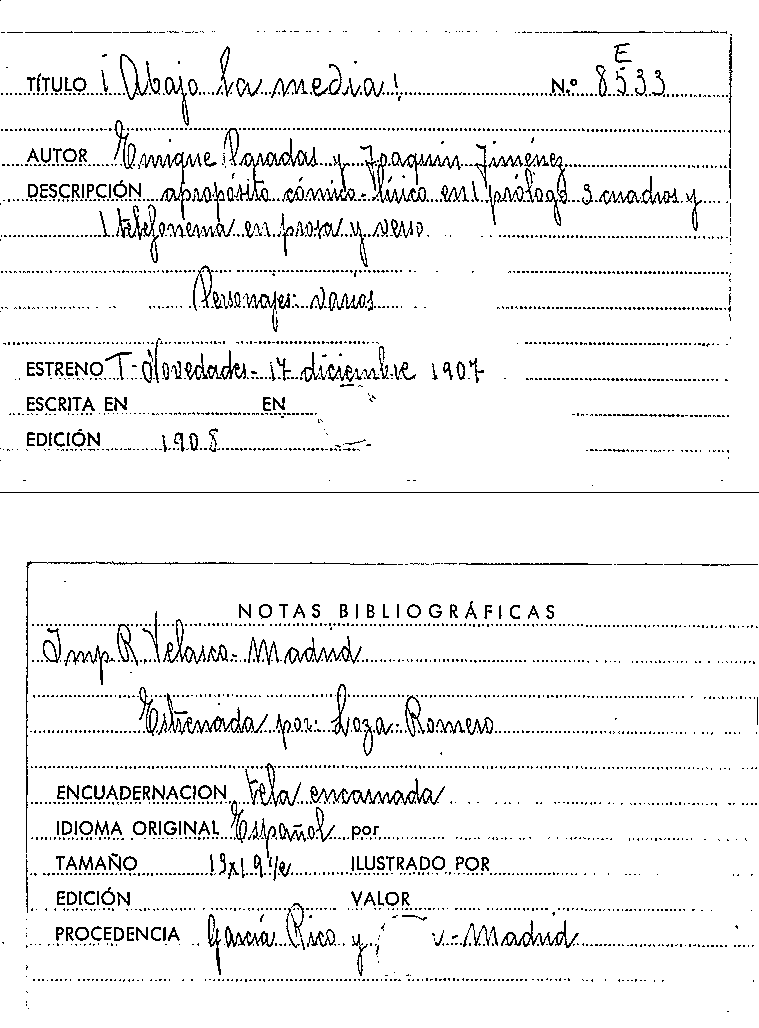 E
TÍTULO ¡Abajo la media! N.º 8533
AUTOR Enrique Paradas y Joaquín Jiménez
DESCRIPCIÓN apropósito cómico-lírico en 1 prólogo 3 cuadros y
1 telefonema en prosa y verso
Personajes: varios
ESTRENO T-Novedades-17 diciembre 1907
ESCRITA EN EN
EDICIÓN 1908
NOTAS BIBLIOGRÁFICAS
Imp. R. Velasco-Madrid
Estrenada por: Loza-Romero
ENCUADERNACION tela encarnada
IDIOMA ORIGINAL Español por
TAMAÑO 13x19 ILUSTRADO POR
EDICIÓN VALOR
PROCEDENCIA García Rico y -Madrid